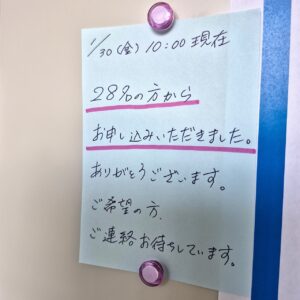 1/30(金) 10:00 現在
28名の方から
お申し込みいただきました。
ありがとうございます。
ご希望の方、
ご連絡お待ちしています。